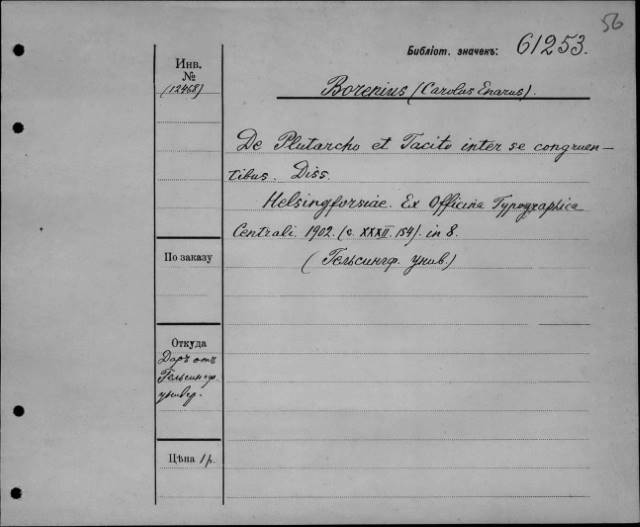 56
Библіот. значекъ: 61253.
Инв.
№
(12468)
Borenius (Carolus Enarus).
De Plutarcho et Tacito inter se congruen-
tibus. Diss.
Helsingforsiae. Ex Officina Typographica
Centrali. 1902. (c. XXXII. 154). in 8.
(Гельсингф. унив.)
По заказу
Откуда
Даръ отъ
Гельсингф.
универ.
Цѣна 1 р.